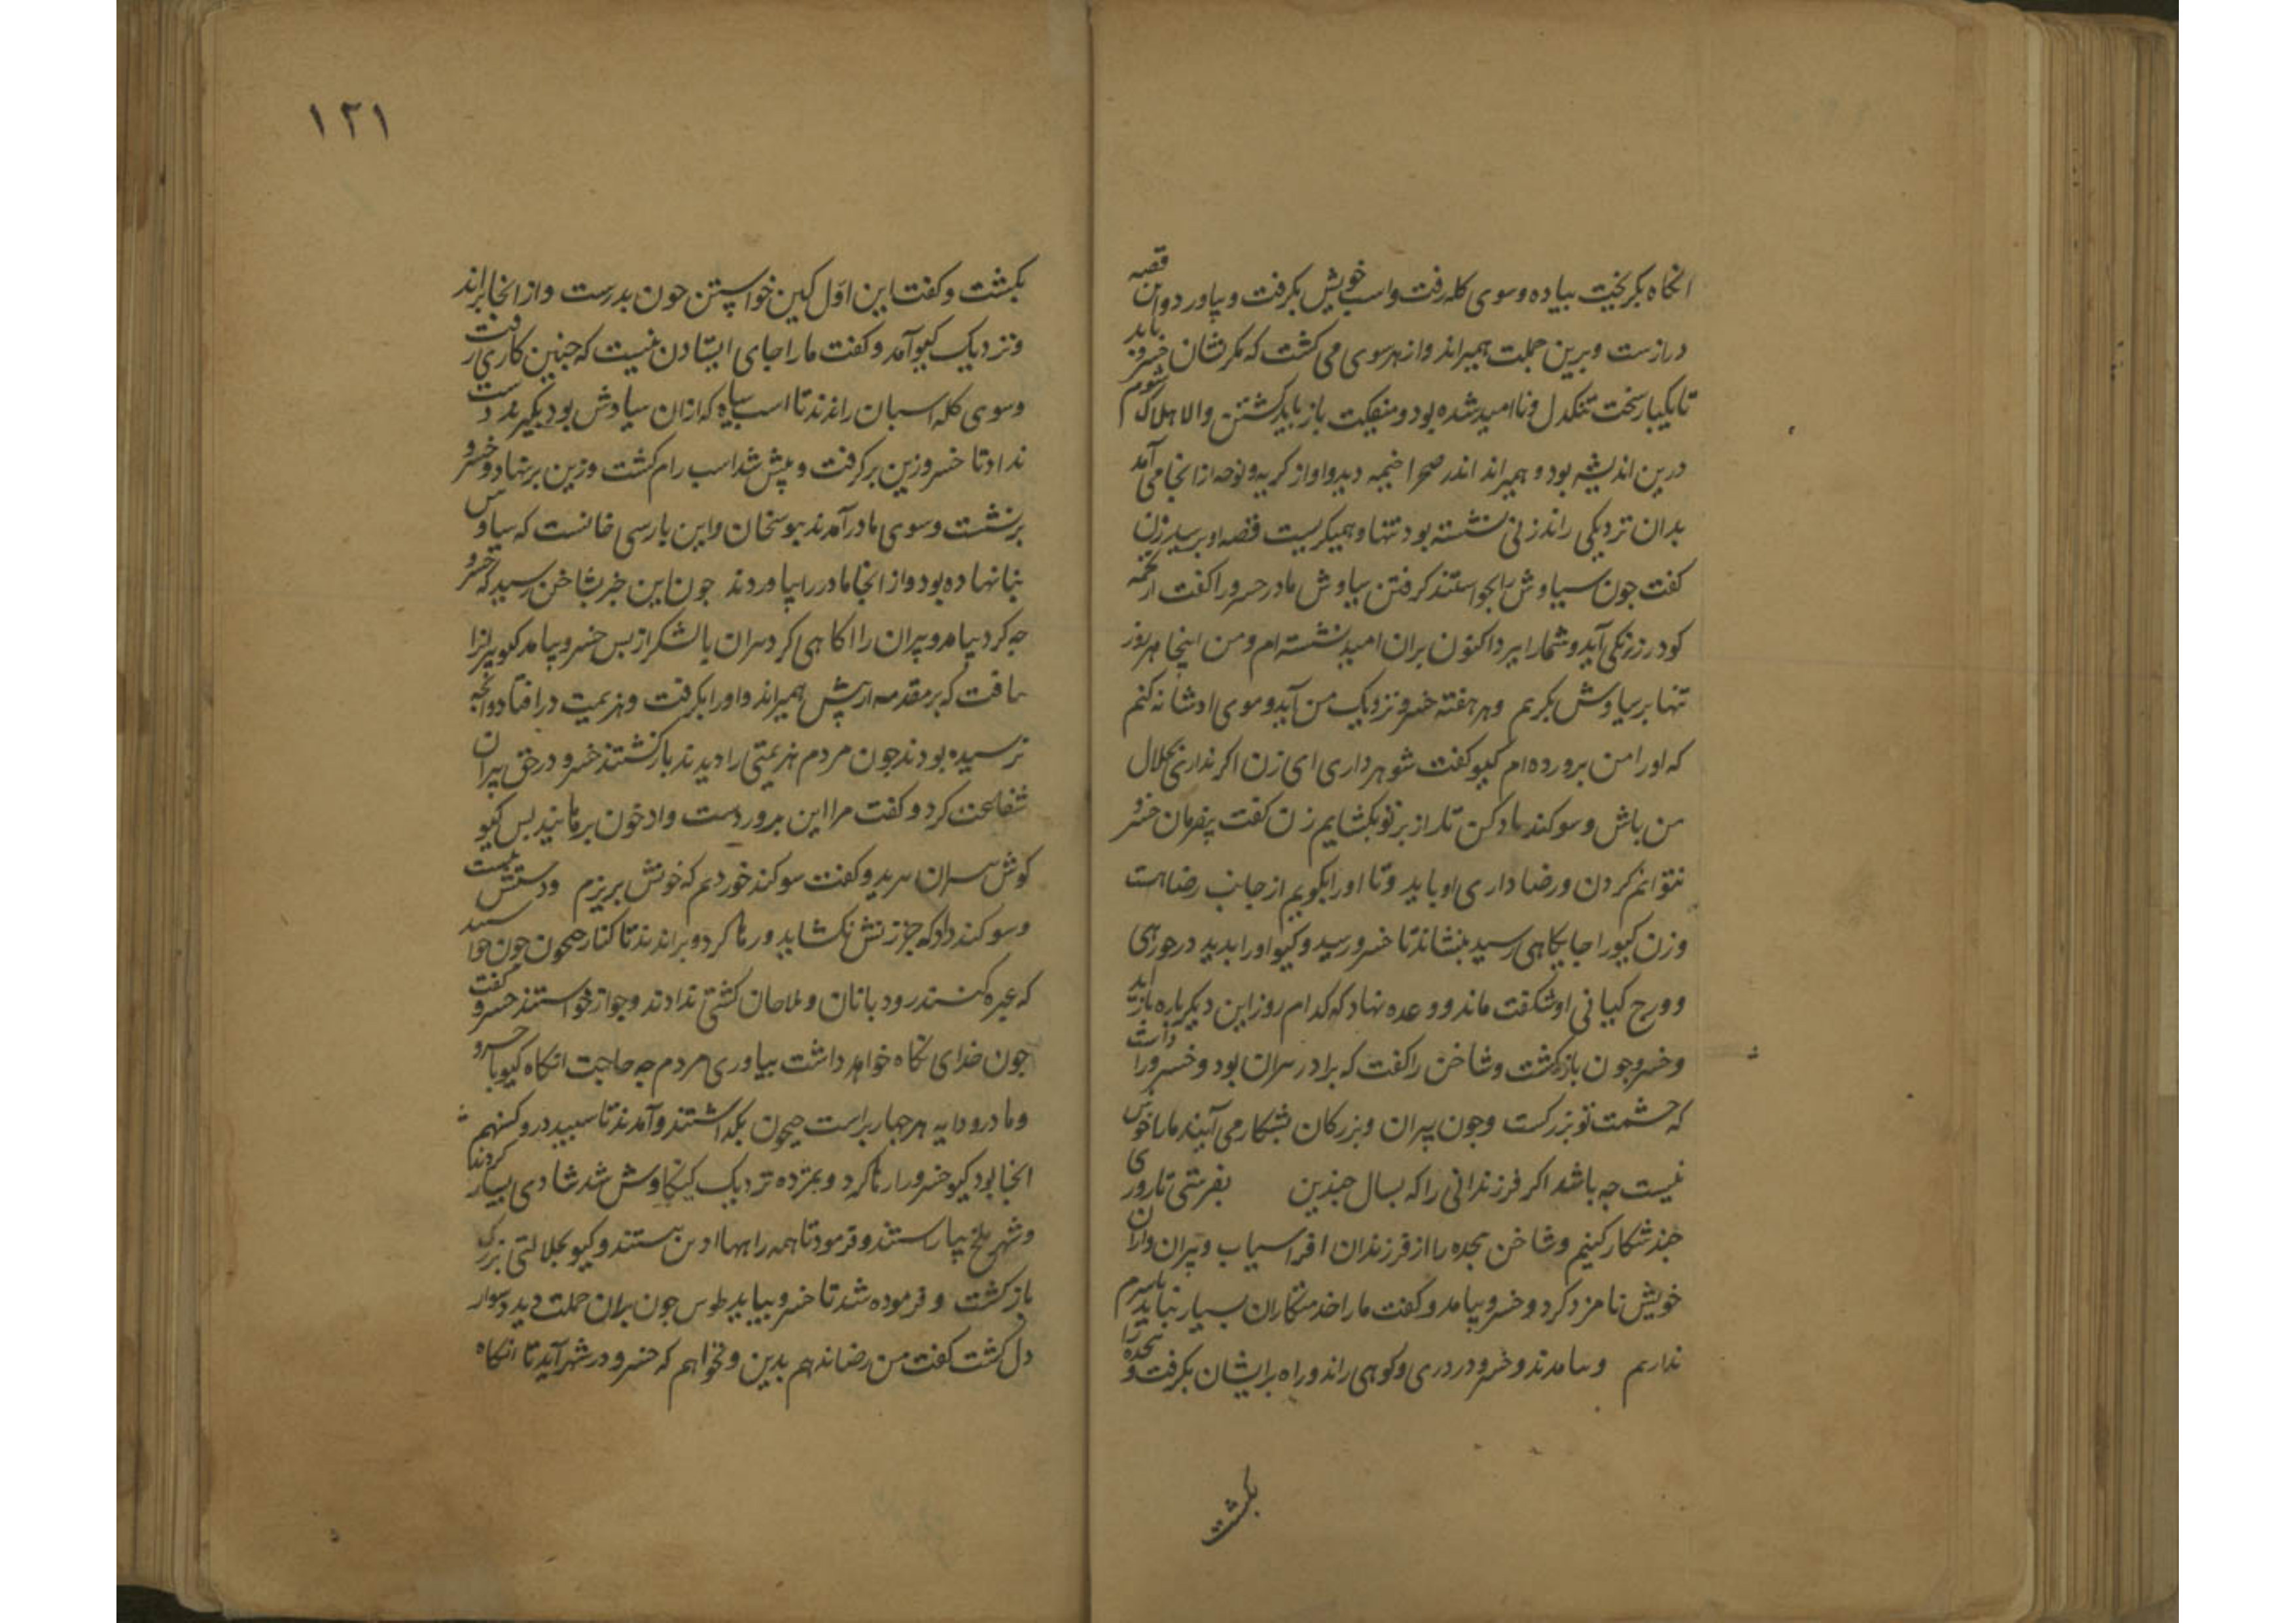 انکاه بکریخت پیاده وسوی کله رفت واسب خویش بکرفت و بیاورد واین قصه
درازست وبرین جملت همیراند واز هر سوی می کشت که مکر نشان خسرو یابد
تا یکبار سخت تنکدل ونا امید شده بود ومیکفت باز باید کشتن والا هلاک شوم
درین اندیشه بود و همیراند اندر صحرا خیمه دید واواز کریه ونوحه از انجا می آمد
بدان نزدیکی راند زنی نشسته بود تنها وهمیکریست قصه او بپرسید زن
کفت جون سیاوش را بخواستند کرفتن سیاوش مادر خسرو را کفت از تخمه
کودرز یکی آید وشما را ببرد اکنون بران امید نشسته ام ومن اینجا هر روز
تنها بر سیاوش بکریم وهر هفته خسرو نزدیک من آید وموی او شانه کنم
که او را من برورده ام کیو کفت شوهر داری ای زن اکر نداری بحلال
من باش وسوکند یاد کن تا راز بر تو بکشایم زن کفت بیفرمان خسرو
نتوانم کردن ورضا داری او باید وتا او را بکویم از جانب رضا است
وزن کیو را جایکاهی رسید بنشاند تا خسرو رسید وکیو او را بدید در خوبی
وورج کیانی او شکفت ماند ووعده نهاد که کدام روز این دیکر باره باز آید
وخسرو جون باز کشت وشاخن را کفت که برادر بیران بود وخسرو را داشت
که حشمت تو بزرکست وجون پیران وبزرکان بشکار می آیند ما را خوش
نیست جه باشد اکر فرزندانی را که بسال جندین بفرستی تا روزی
جند شکار کنیم وشاخن بجده را از فرزندان افراسیاب وپیران واران
خویش نامزد کرد وخسرو بیامد وکفت ما را خدمتکاران بسیار نباید
نداریم وبیامدند وخسرو در دری وکوهی راند وراه برایشان بکرفت وبجده را
بکشت
۱۲۱
بکشت وکفت این اول کین خواستن خون بدرست واز انجا براند
ونزدیک کیو آمد وکفت ما را جای ایستادن نیست که جنین کاری رفت
وسوی کله اسبان راندند تا اسب سیاه که ازان سیاوش بود بکیرند دست
نداد تا خسرو زین برکرفت و پیش شد اسب رام کشت وزین برنهاد وخسرو
برنشست وسوی مادر آمدند بوستخان واین بارسی خانست که سیاوش
بنا نهاده بود واز انجا مادر را بیاوردند جون این خبر بشاخن رسید که خسرو
جه کرد بیامد وپیران را اکاهی کرد بیران با لشکر از بس خسرو بیامد کیو بیران را
یافت که بر مقدمه از پیش همیراند واو را بکرفت وهزیمت در افتاد وانجه
نرسیده بودند جون مردم هزیمتی را دیدند باز کشتند خسرو در حق بیران
شفاعت کرد وکفت مرا این بروردست واز خون برهانید بس کیو
کوش بیران ببرید وکفت سوکند خوردم که خونش بریزم ودستش ببست
وسوکند داد که جز زنش نکشاید ورها کرد وبراندند تا کنار جیحون جون خواستند
که عبره کنند رود بانان وملاحان کشتی ندادند وجواز خواستند خسرو کفت
جون خدای نکاه خواهد داشت بیاوری مردم جه حاجت انکاه کیو با خسرو
ومادر ودایه هر جهار براست جیحون بکذاشتند وآمدند تا سبید در وکستهم
انجا بود کیو خسرو را رها کرد وبمژده نزدیک کیکاوش شد شادی بسیار کردند
وشهر بلخ بیاراستند وفرمود تا همه راهها ادین بستند وکیو بجلالتی بزرک
باز کشت وفرموده شد تا خسرو بیاید طوس جون بران جملت دید دسوار
دل کشت کفت من رضا ندهم بدین ونخواهم که خسرو در شهر آید تا انکاه